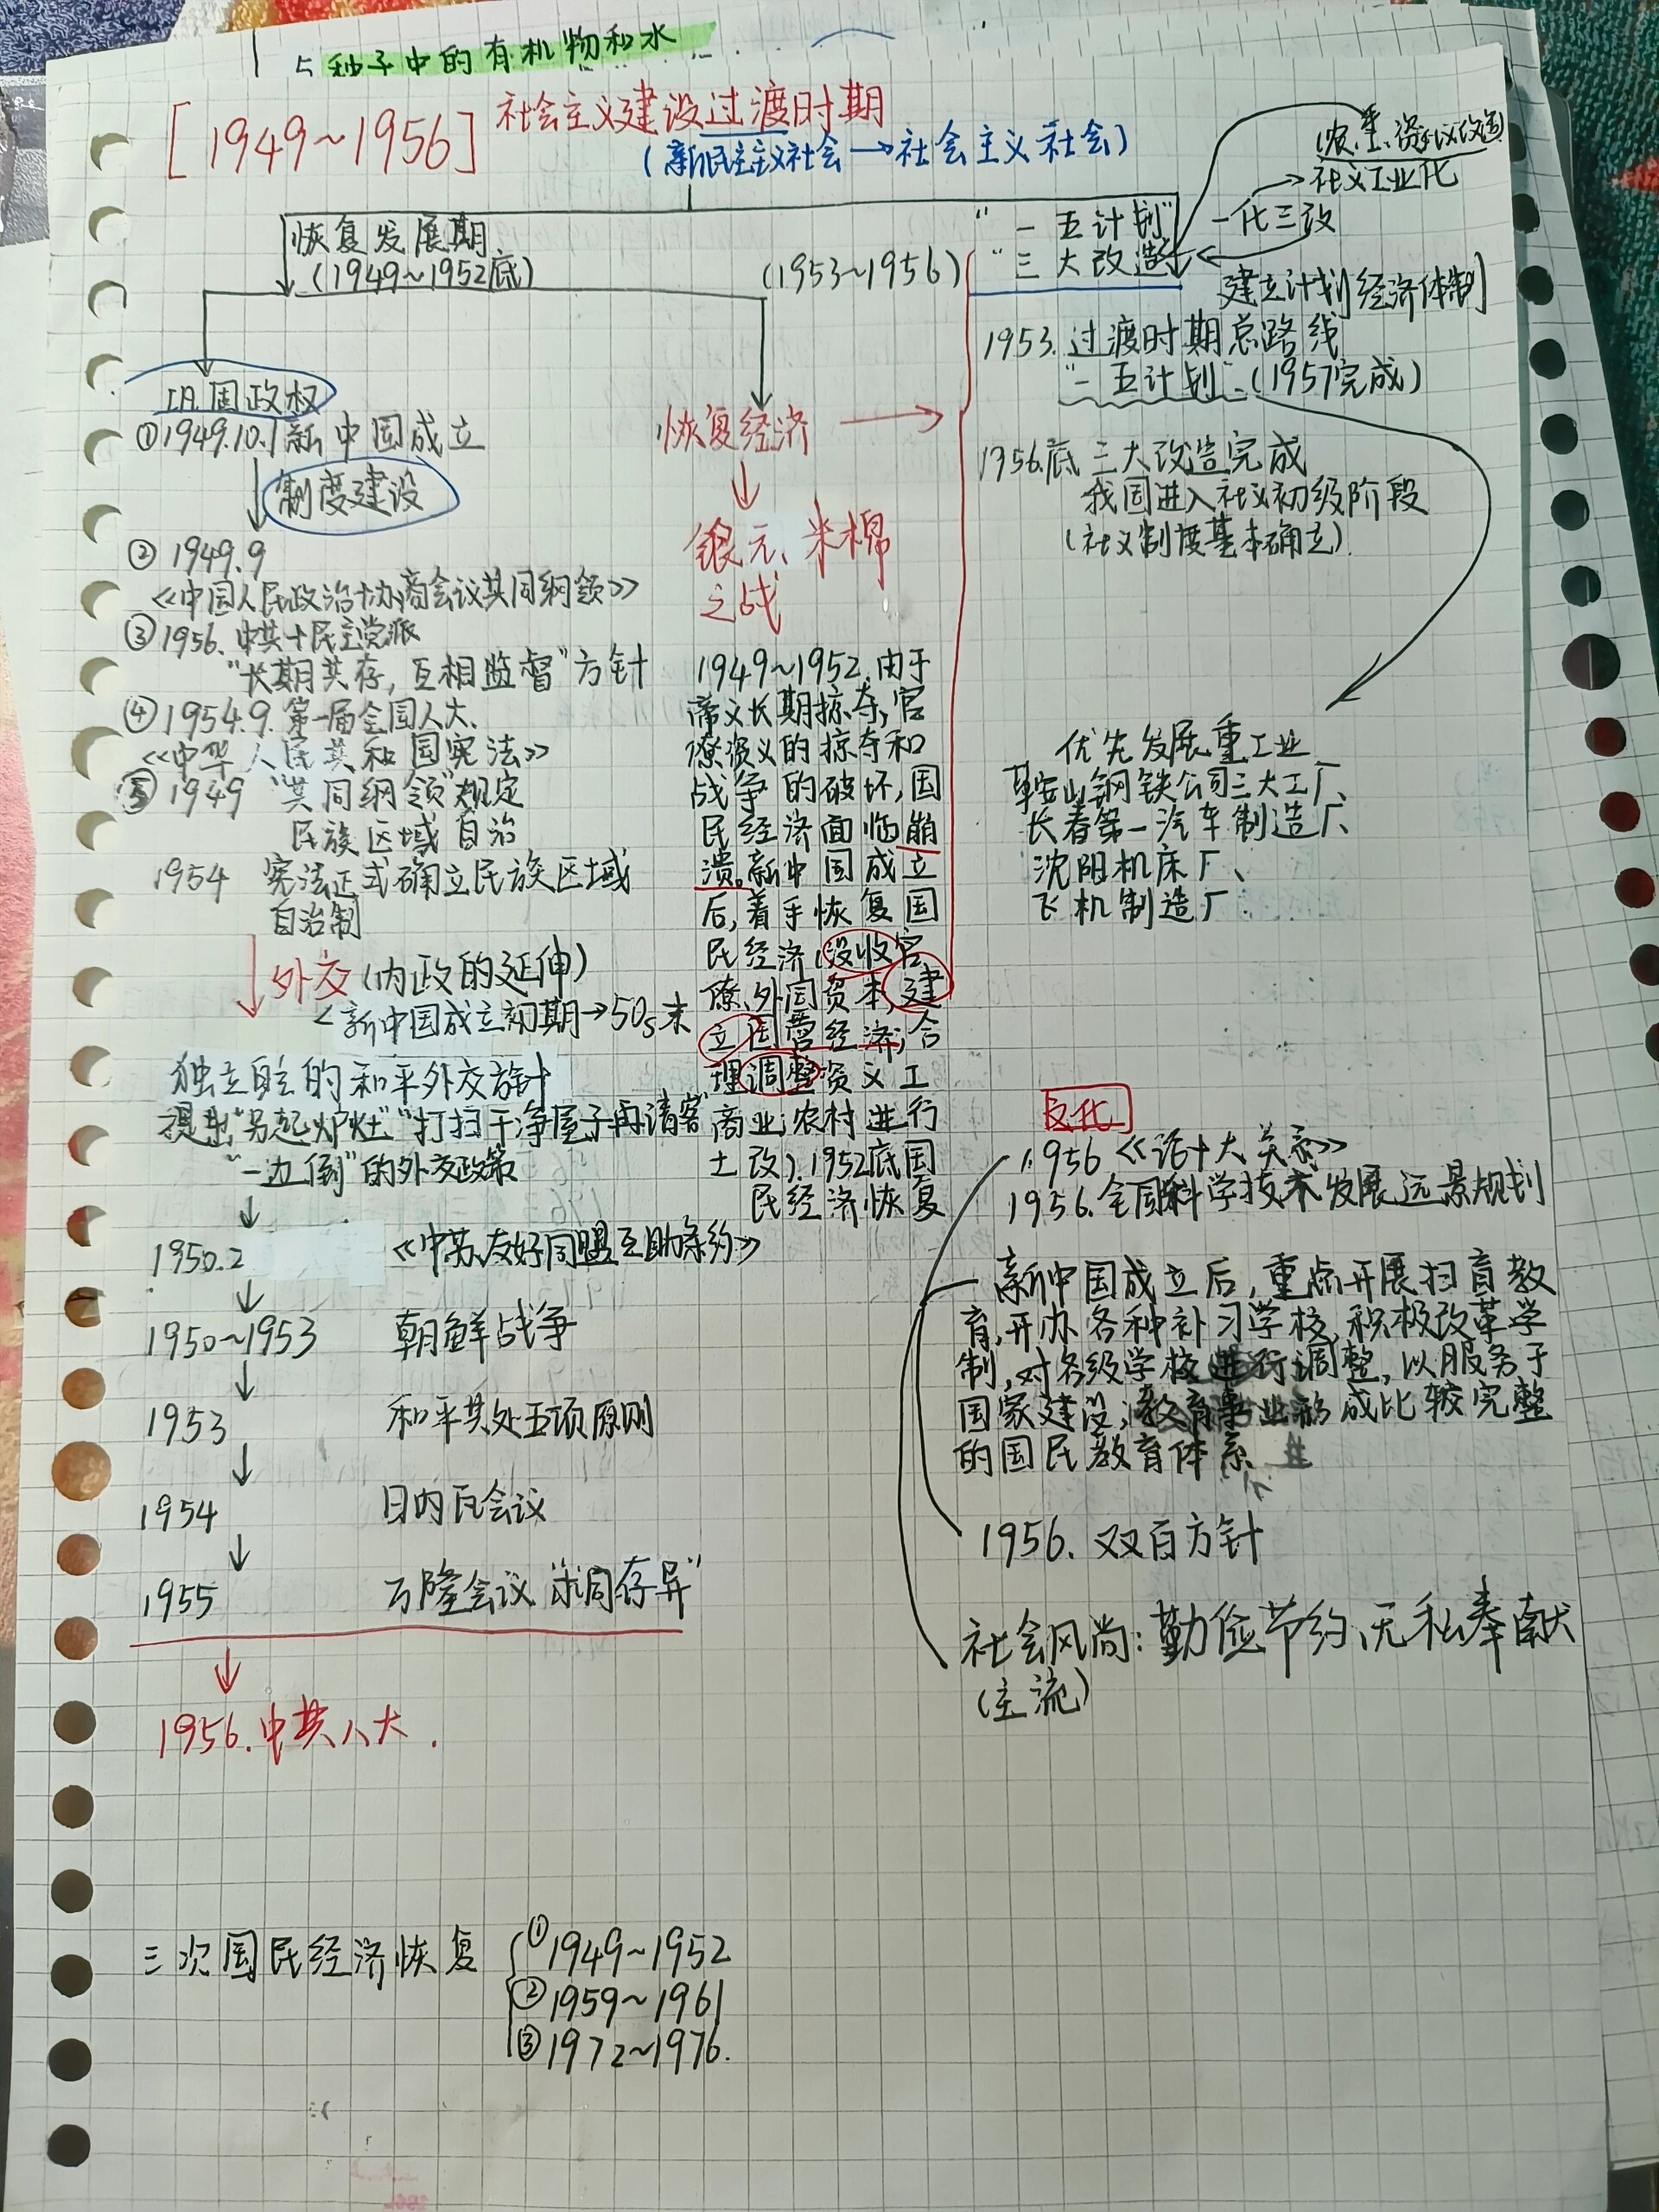 5 种子中的有机物和水
[1949~1956] 社会主义建设过渡时期
(新民主主义社会→社会主义社会)
恢复发展期
(1949~1952底)
巩固政权
①1949.10.1新中国成立
制度建设
② 1949.9
《中国人民政治协商会议共同纲领》
③1956.中共+民主党派
"长期共存,互相监督"方针
④1954.9.第一届全国人大、
《中华人民共和国宪法》
⑤1949 "共同纲领"规定
民族区域自治
1954 宪法正式确立民族区域
自治制
外交(内政的延伸)
<新中国成立初期→50s末
独立自主的和平外交方针
提出"另起炉灶""打扫干净屋子再请客"
"一边倒"的外交政策
1950.2 《中苏友好同盟互助条约》
1950~1953 朝鲜战争
1953 和平共处五项原则
1954 日内瓦会议
1955 万隆会议"求同存异"
1956.中共八大.
恢复经济
银元、米棉
之战
1949~1952.由于
帝义长期掠夺,官
僚资义的掠夺和
战争的破坏,国
民经济面临崩
溃。新中国成立
后,着手恢复国
民经济(没收官
僚、外国资本,建
立国营经济;合
理调整资义工
商业;农村进行
土改).1952底国
民经济恢复
(1953~1956)
"一五计划"
"三大改造"
一化三改
社义工业化
建立计划经济体制
1953.过渡时期总路线
"一五计划"(1957完成)
1956.底 三大改造完成
我国进入社义初级阶段
(社义制度基本确立).
优先发展重工业
鞍山钢铁公司三大工厂、
长春第一汽车制造厂、
沈阳机床厂、
飞机制造厂
文化
1956《论十大关系》
1956.全国科学技术发展远景规划
新中国成立后,重点开展扫盲教
育,开办各种补习学校,积极改革学
制,对各级学校进行调整,以服务于
国家建设,教育事业形成比较完整
的国民教育体系
1956.双百方针
社会风尚:勤俭节约、无私奉献
(主流)
三次国民经济恢复
①1949~1952
②1959~1961
③1972~1976.